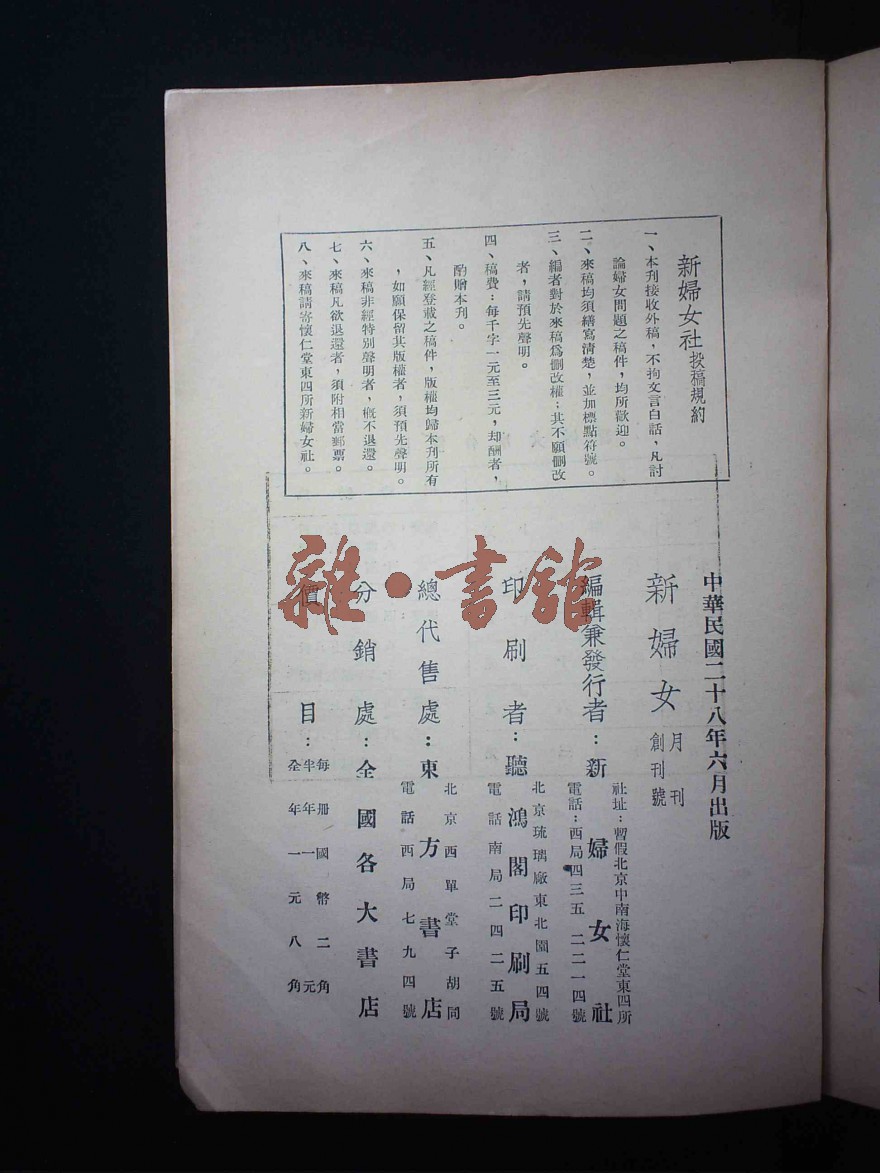 新婦女社投稿規約
一、本刊接收外稿，不拘文言白話，凡討
論婦女問題之稿件，均所歡迎。
二、來稿均須繕寫清楚，並加標點符號。
三、編者對於來稿爲刪改權；其不願刪改
者，請預先聲明。
四、稿費：每千字一元至三元，却酬者，
酌贈本刊。
五、凡經登載之稿件，版權均歸本刊所有
，如願保留其版權者，須預先聲明。
六、來稿非經特別聲明者，概不退還。
七、來稿凡欲退還者，須附相當郵票。
八、來稿請寄懷仁堂東四所新婦女社。
中華民國二十八年六月出版
新婦女月刊
創刊號
編輯兼發行者：新婦女社
社址：暫假北京中南海懷仁堂東四所
電話：西局四三五 二二一四號
印刷者：聽鴻閣印刷局
北京琉璃廠東北園五四號
電話南局二四二五號
總代售處：東方書店
北京西單堂子胡同
電話西局七九四號
分銷處：全國各大書店
價目：
每冊國幣二角
半年一元
全年一元八角
雜·書館